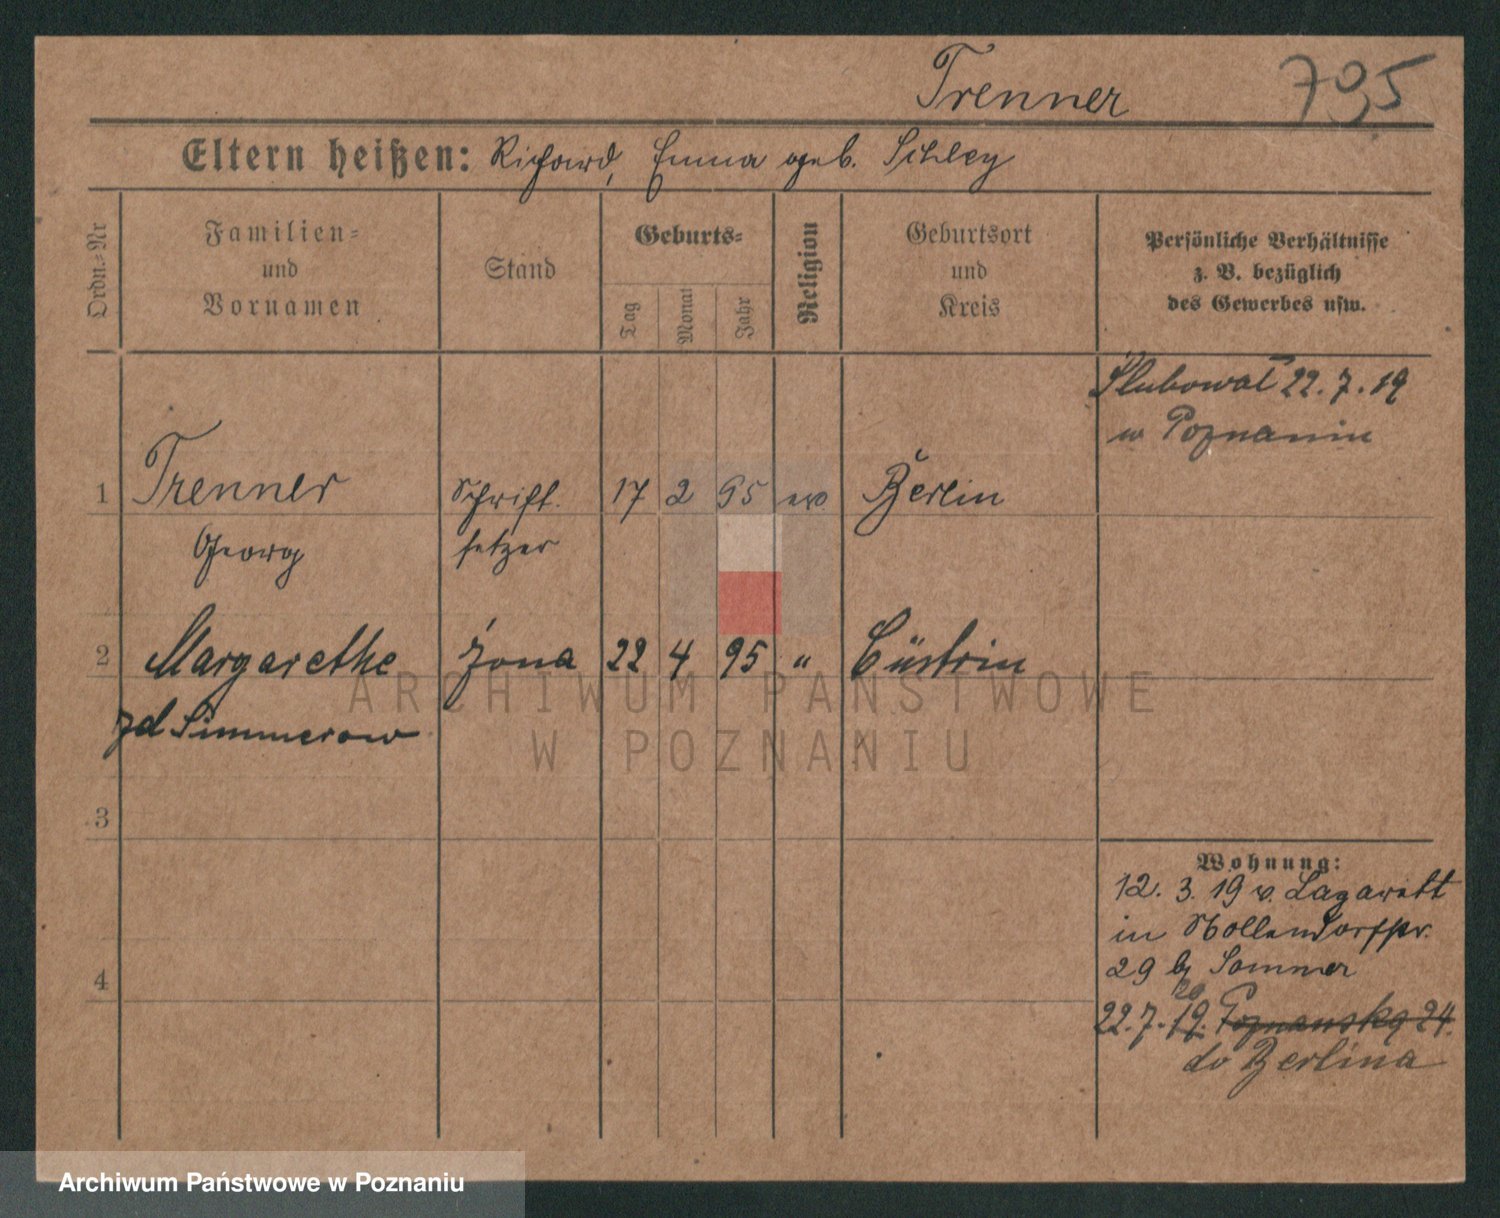 Trenner 795
Eltern heißen: Richard, Emma geb. Schley
Ordn.-Nr
Familien-
und
Vornamen
Stand
Geburts-
Tag
Monat
Jahr
Religion
Geburtsort
und
Kreis
Persönliche Verhältnisse
z. B. bezüglich
des Gewerbes usw.
Slubował 22.7.19
w Poznaniu
1 Trenner Schrift. 17 2 95 ev. Berlin
Georg setzer
2 Margarethe żona 22 4 95 " Cüstrin
zd Simmerow
ARCHIWUM PAŃSTWOWE
W POZNANIU
3
Wohnung:
12. 3. 19 v. Lazarett
in Nollendorfstr.
29 bj Sommer
4
20
22.7.19. Poznanska 24.
do Berlina
Archiwum Państwowe w Poznaniu